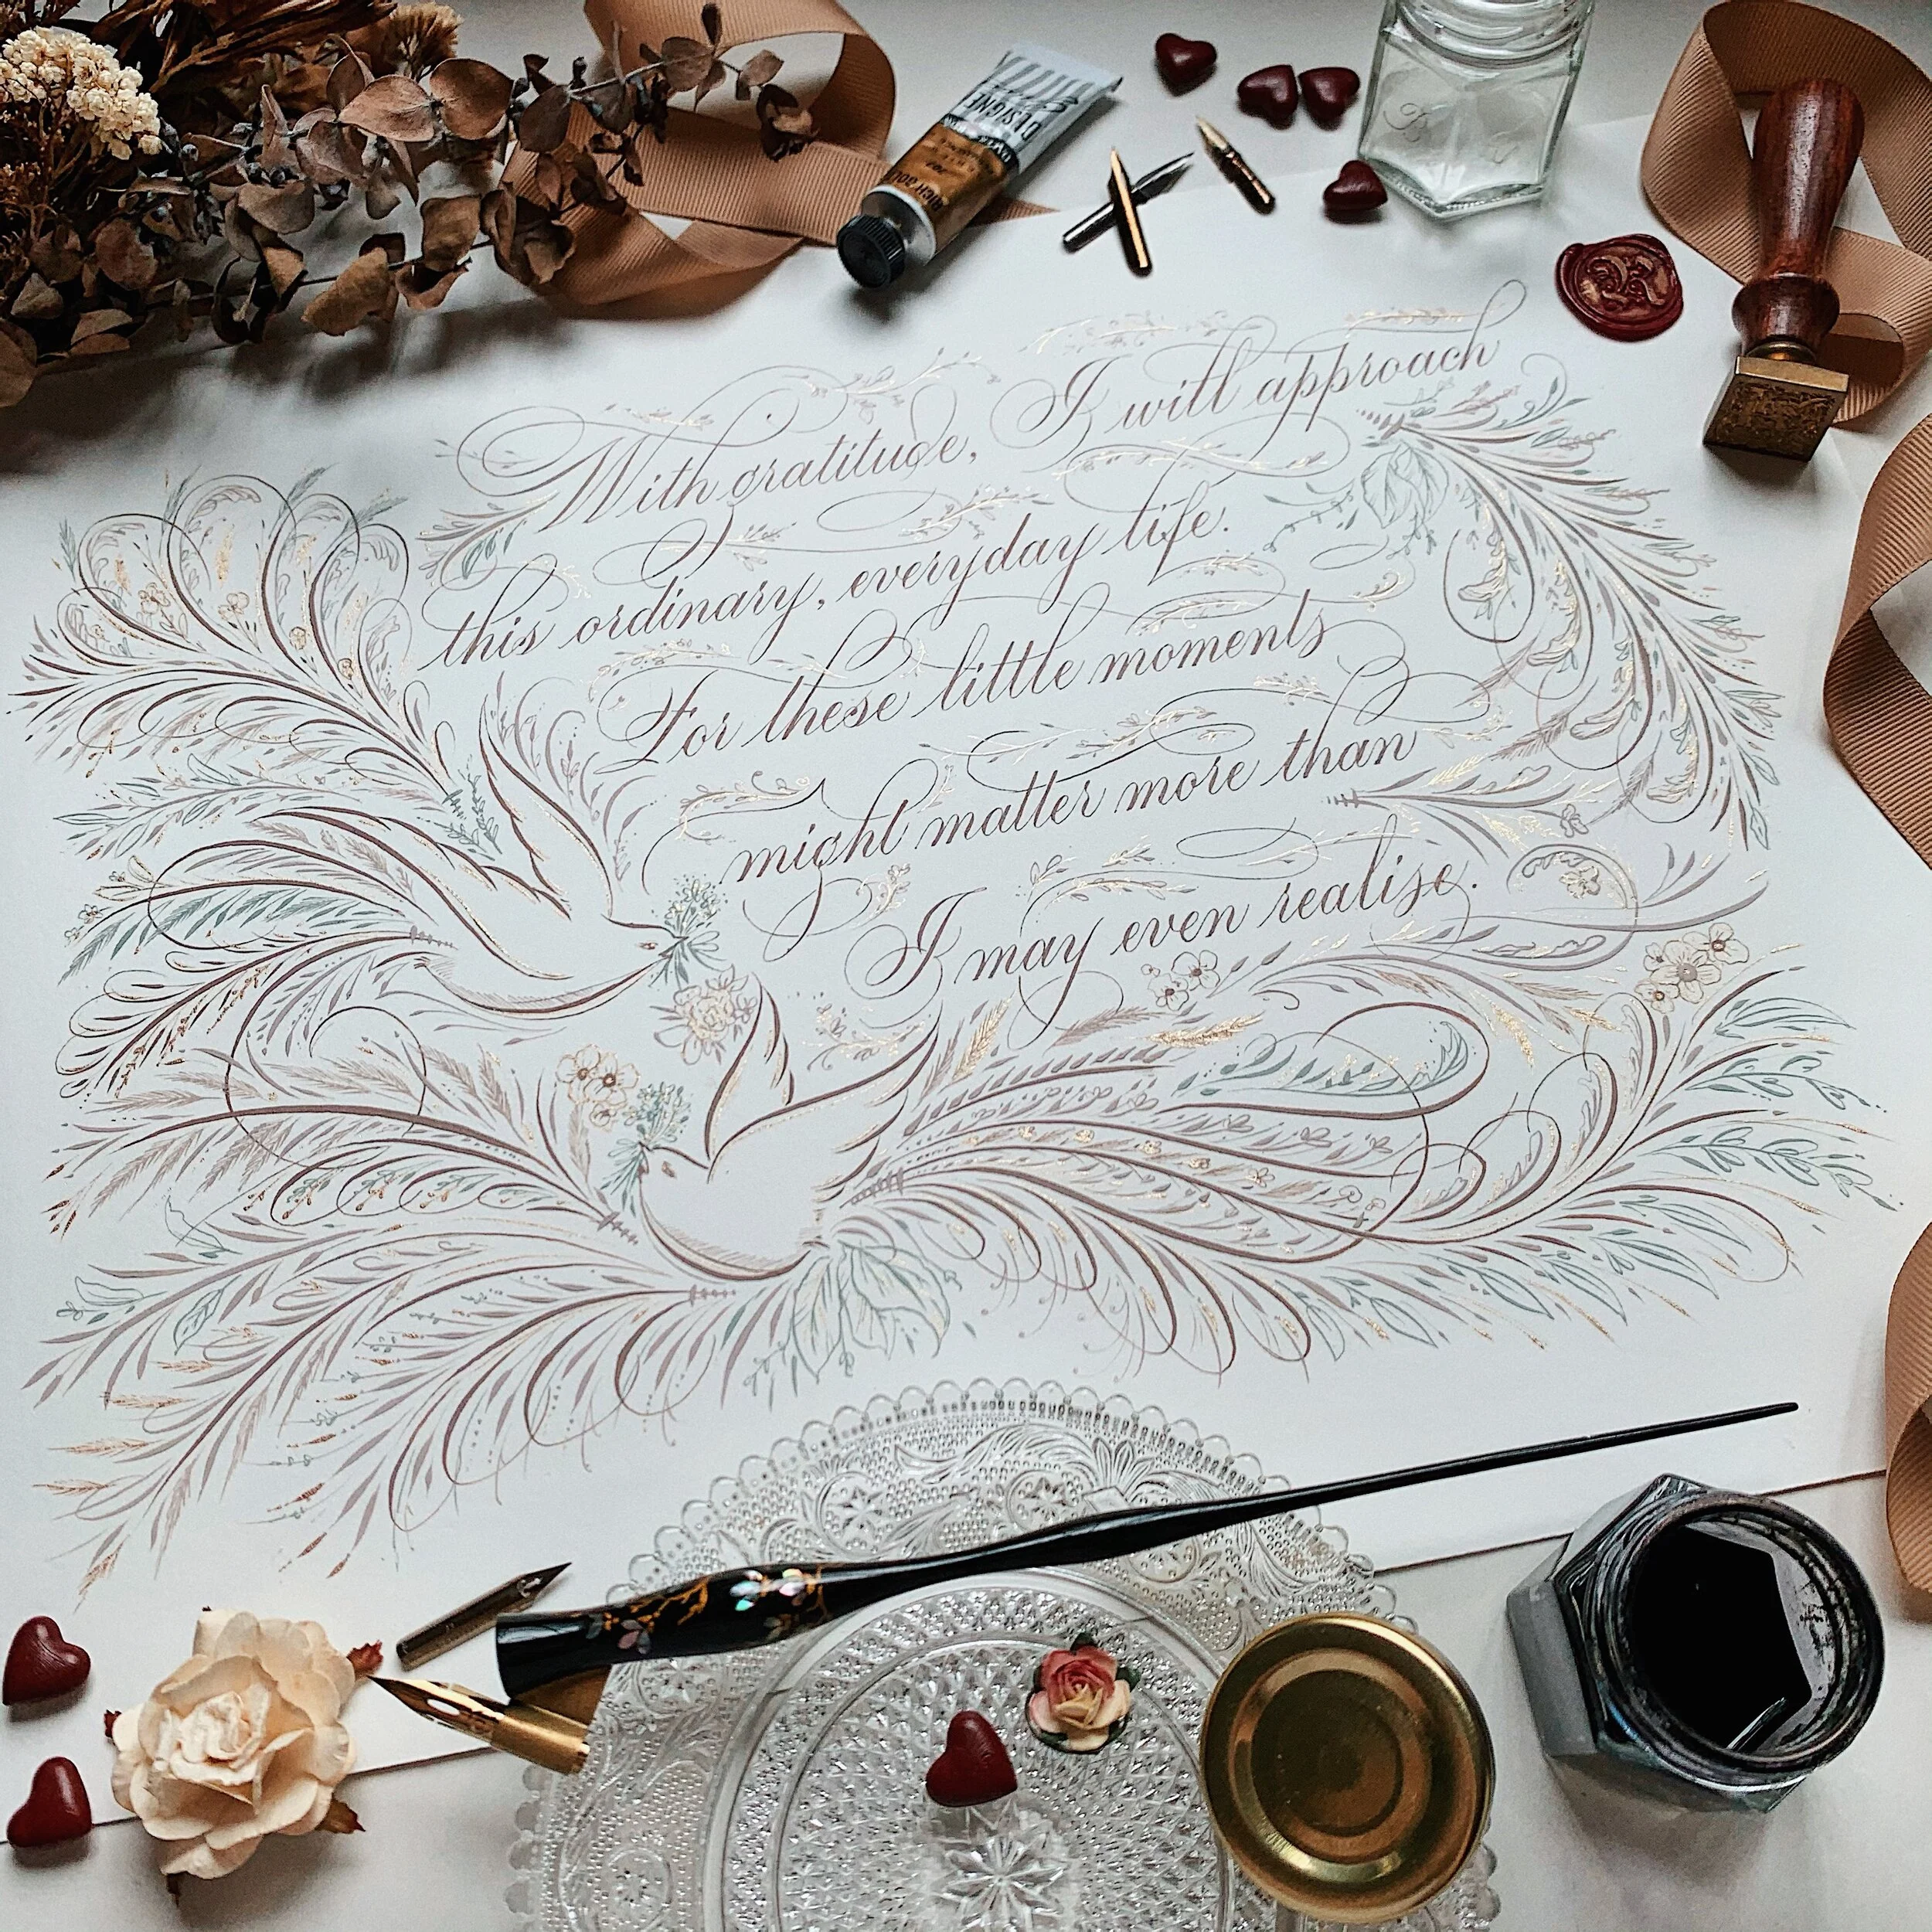 DESIGNE
With gratitude, I will approach
this ordinary, everyday life.
For these little moments
might matter more than
I may even realise.